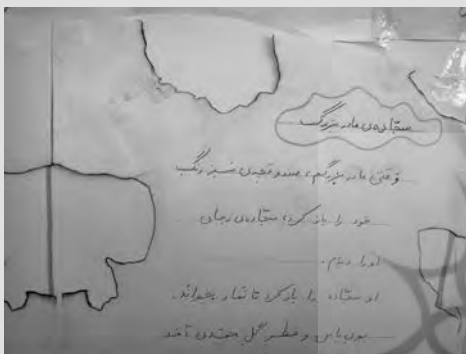 سجّاده‌ی مادربزرگ
وقتی مادربزرگم، صندوقچه‌ی سبز رنگ
خود را باز کرد، سجّاده‌ی زیبای
او را دیدم.
او سجّاده را باز کرد تا نماز بخواند.
بوی یاس و عطر گل محمّدی آمد